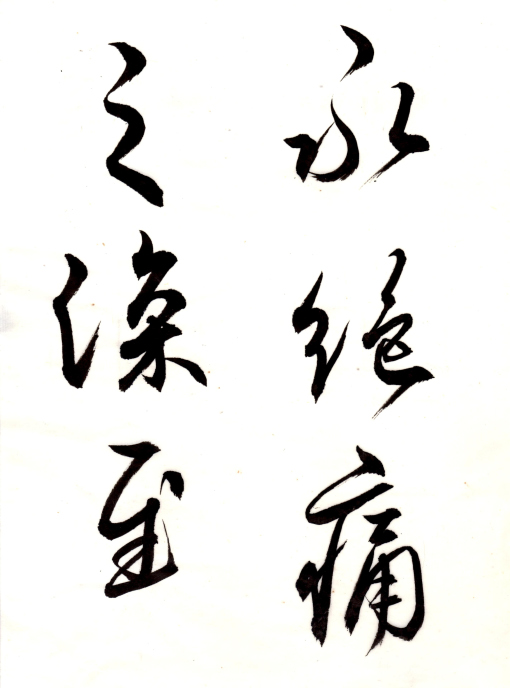 永絶痛
之深至